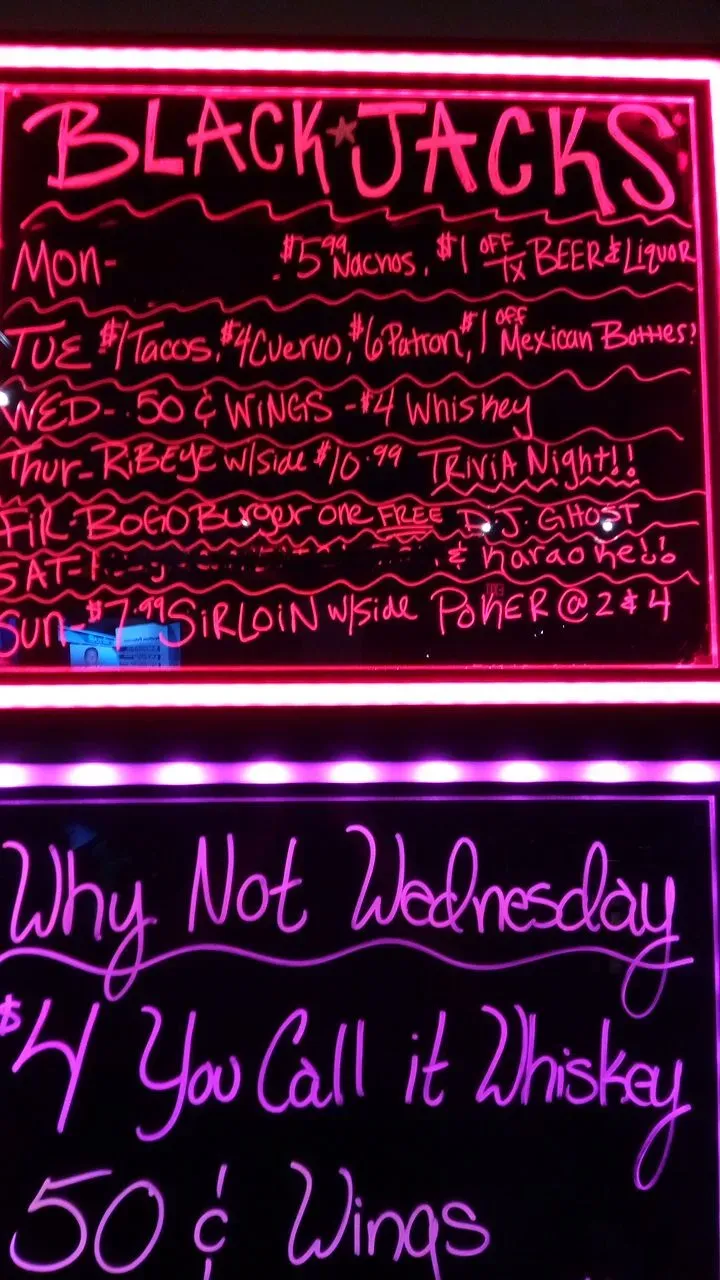 BLACK★JACKS
Mon- $5.99 Nachos, $1 OFF TX BEER & LiQUOR
TUE $1 Tacos, $4 Cuervo, $6 Patron, $1 OFF Mexican Bottles!
WED- .50 ¢ WiNGS - $4 Whiskey
Thur- RiBEYE w/side $10.99 TRiViA Night!!
FiR- BOGO Burger one FREE D.J. GHOST
SAT- & Karaoke!!
Sun- $7.99 SiRLOiN w/side POKER @ 2 & 4
Why Not Wednesday
$4 You Call it Whiskey
50 ¢ Wings